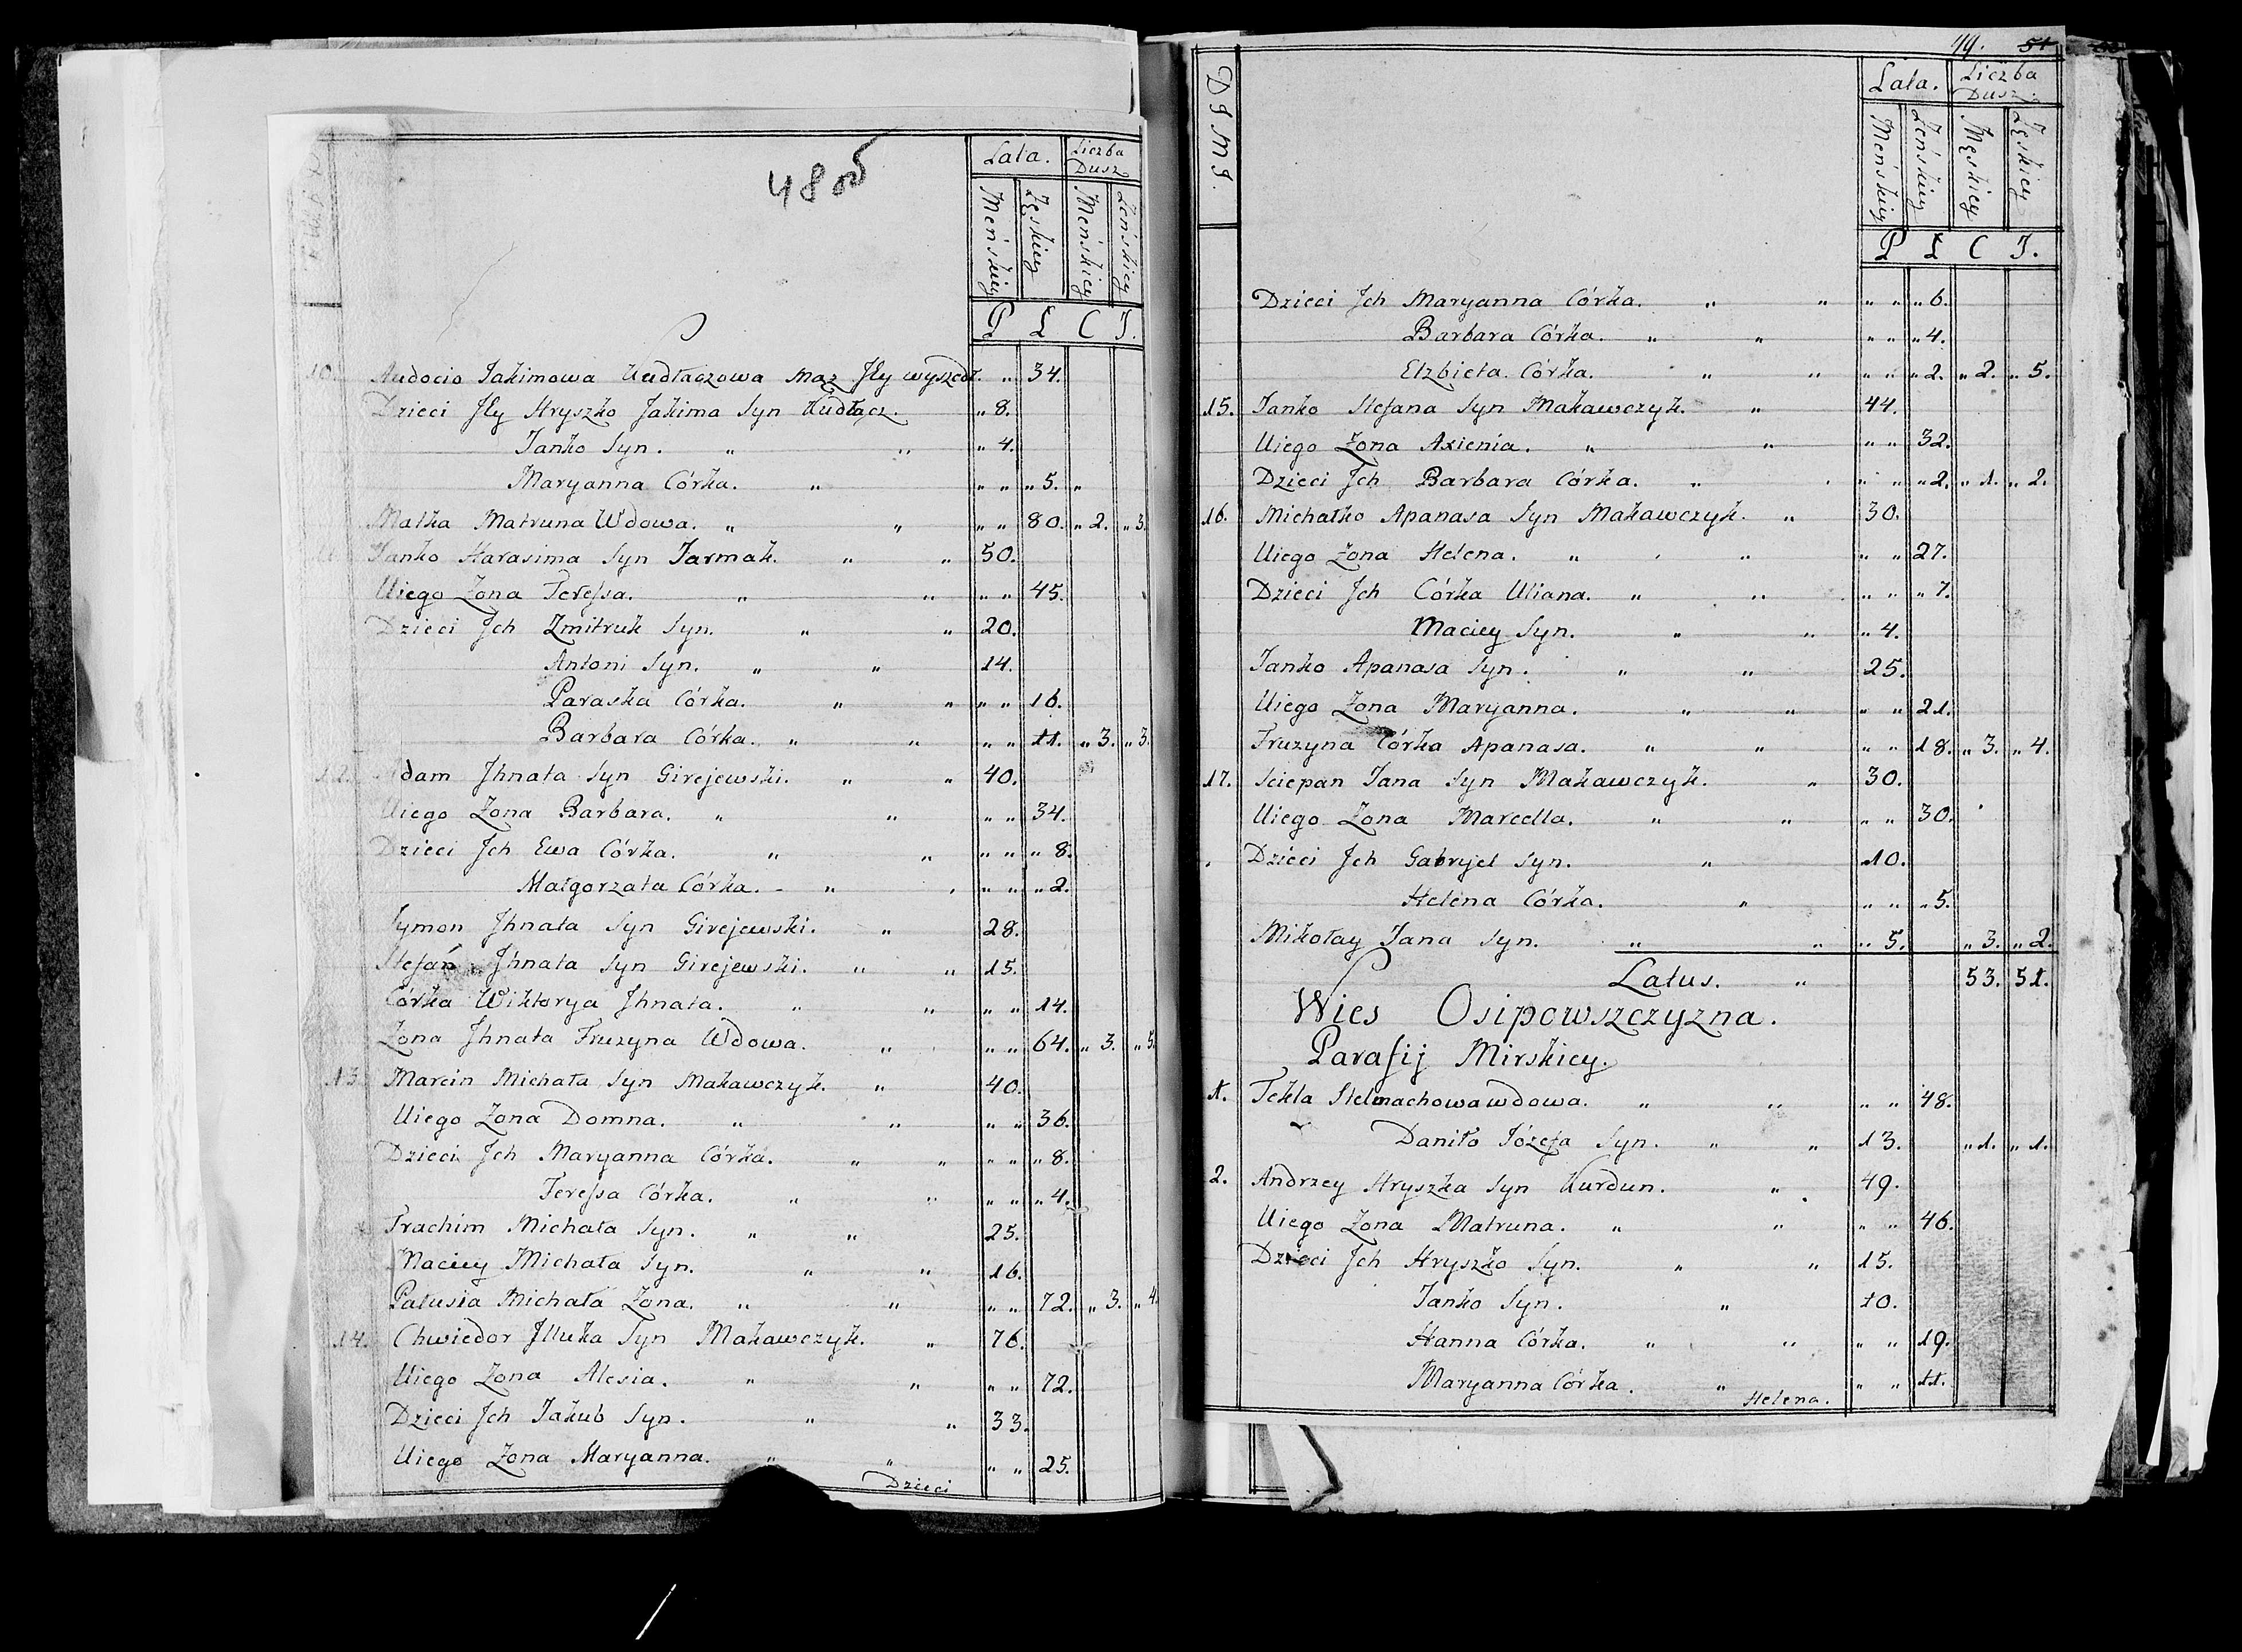 48 об
Lata. Liczba Dusz
Meńskiey Zęskiey Meńskiey Zeńskiey
P L C J.
10. Audocia Jakimowa Kudłaczowa Mąz Jły wyszedł. " 34.
Dzieci Jły Hryszko Jakima Syn Kudłącz. " 8.
Janko Syn. " " " 4.
Maryanna Córka. " " " " 5. "
Matka Matruna Wdowa. " " " " 80. " 2. " 3.
11. Janko Harasima Syn Jarmak. " " 50.
Uiego Zona Teressa. " " " " 45.
Dzieci Jch Zmitruk Syn. " " 20.
Antoni Syn. " " 14.
Paraska Córka. " " " " 16.
Barbara Córka. " " " " 11. " 3. " 3.
12. Adam Jhnata Syn Girejewski. " " 40.
Uiego Zona Barbara. " " " " 34.
Dzieci Jch Ewa Córka. " " " " " 8.
Małgorzata Córka. " " " " " 2.
Symon Jhnata Syn Girejewski. " 28.
Stefan Jhnata Syn Girejewski. " " 15.
Córka Wiktorya Jhnata. " " " " 14.
Zona Jhnata Fruzyna Wdowa. " " " 64. " 3. " 5.
13 Marcin Michała Syn Makawczyk. " 40.
Uiego Zona Domna. " " " " 36.
Dzieci Jch Maryanna Córka. " " " " " 8.
Teressa Córka. " " " " " 4.
Trachim Michała Syn. " " 25.
Maciey Michała Syn. " " 16.
Patusia Michała Zona. " " " " 72. " 3. " 4.
14. Chwiedor Jlluka Syn Makawczyk. " 76.
Uiego Zona Alesia. " " " " 72.
Dzieci Jch Jakub Syn. " " 33.
Uiego Zona Maryanna. " " " " 25.
Dzieci
49. 51
D J M J.
Lata. Liczba Dusz.
Meńskiey Zeńskiey Męskiey Zęskiey
P L C J.
Dzieci Jch Maryanna Córka. " " " " " 6.
Barbara Córka. " " " " " 4.
Elzbieta Córka. " " " " " 2. " 2. " 5.
15. Janko Stefana Syn Makawczyk. " 44.
Uiego Zona Axienia. " " " " 32.
Dzieci Jch Barbara Córka. " " " " 2. " 1. " 2.
16. Michałko Apanasa Syn Makawczyk. " 30.
Uiego Zona Helena. " " " " 27.
Dzieci Jch Córka Uliana. " " " " " 7.
Maciey Syn. " " " 4.
Janko Apanasa Syn. " " 25.
Uiego Zona Maryanna. " " " " 21.
Fruzyna Córka Apanasa. " " " " 18. " 3. " 4.
17. Sciepan Jana Syn Makawczyk. " 30.
Uiego Zona Marcella. " " " " 30.
Dzieci Jch Gabryel Syn. " 10.
Helena Córka. " " " " 5.
Mikołay Jana Syn. " " " 5. " 3. " 2.
Latus. " 53. 51.
Wies Osipowszczyzna.
Parafij Mirskiey.
1. Tekla Stelmachowa wdowa. " " " " 48.
Daniło Józefa Syn. " " 13. " 1. " 1.
2. Andrzey Hryszka Syn Kurdun. " 49.
Uiego Zona Matruna. " " " " 46.
Dzieci Jch Hryszko Syn. " " 15.
Janko Syn. " 10.
Hanna Córka. " " " " 19.
Maryanna Córka. " " " 11.
Helena.